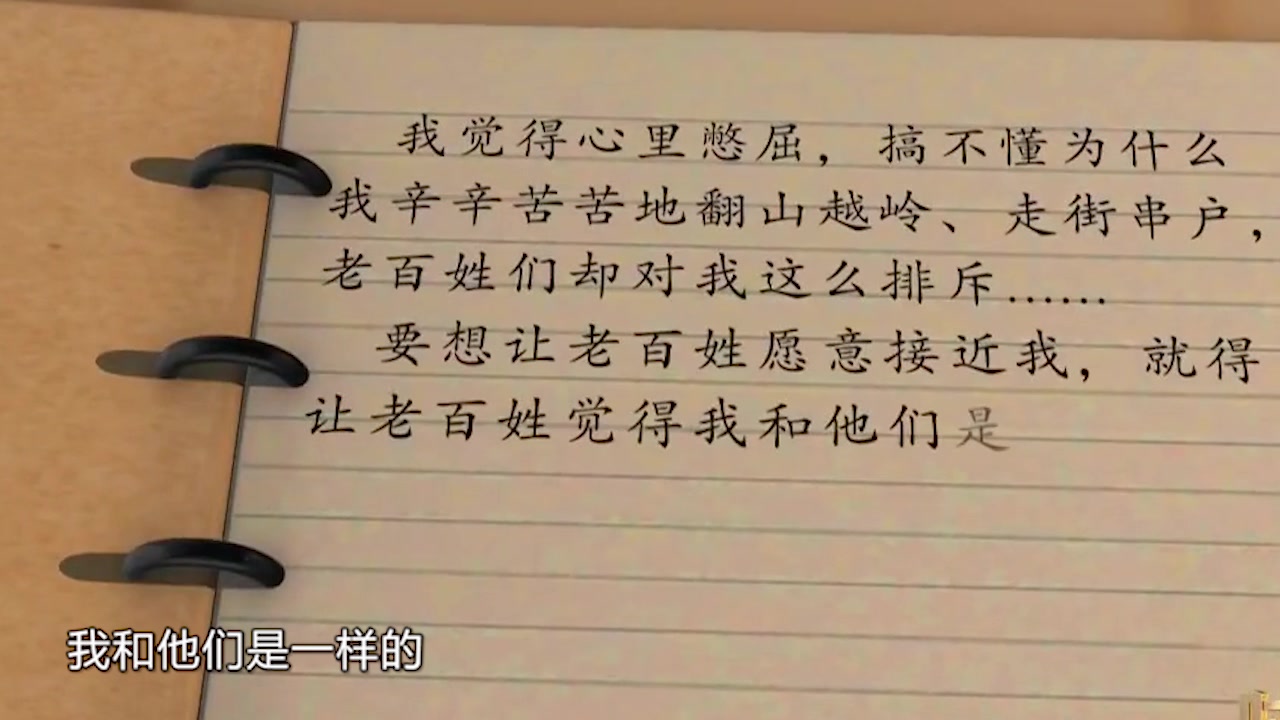 我觉得心里憋屈，搞不懂为什么
我辛辛苦苦地翻山越岭、走街串户，
老百姓们却对我这么排斥……
要想让老百姓愿意接近我，就得
让老百姓觉得我和他们是
我和他们是一样的